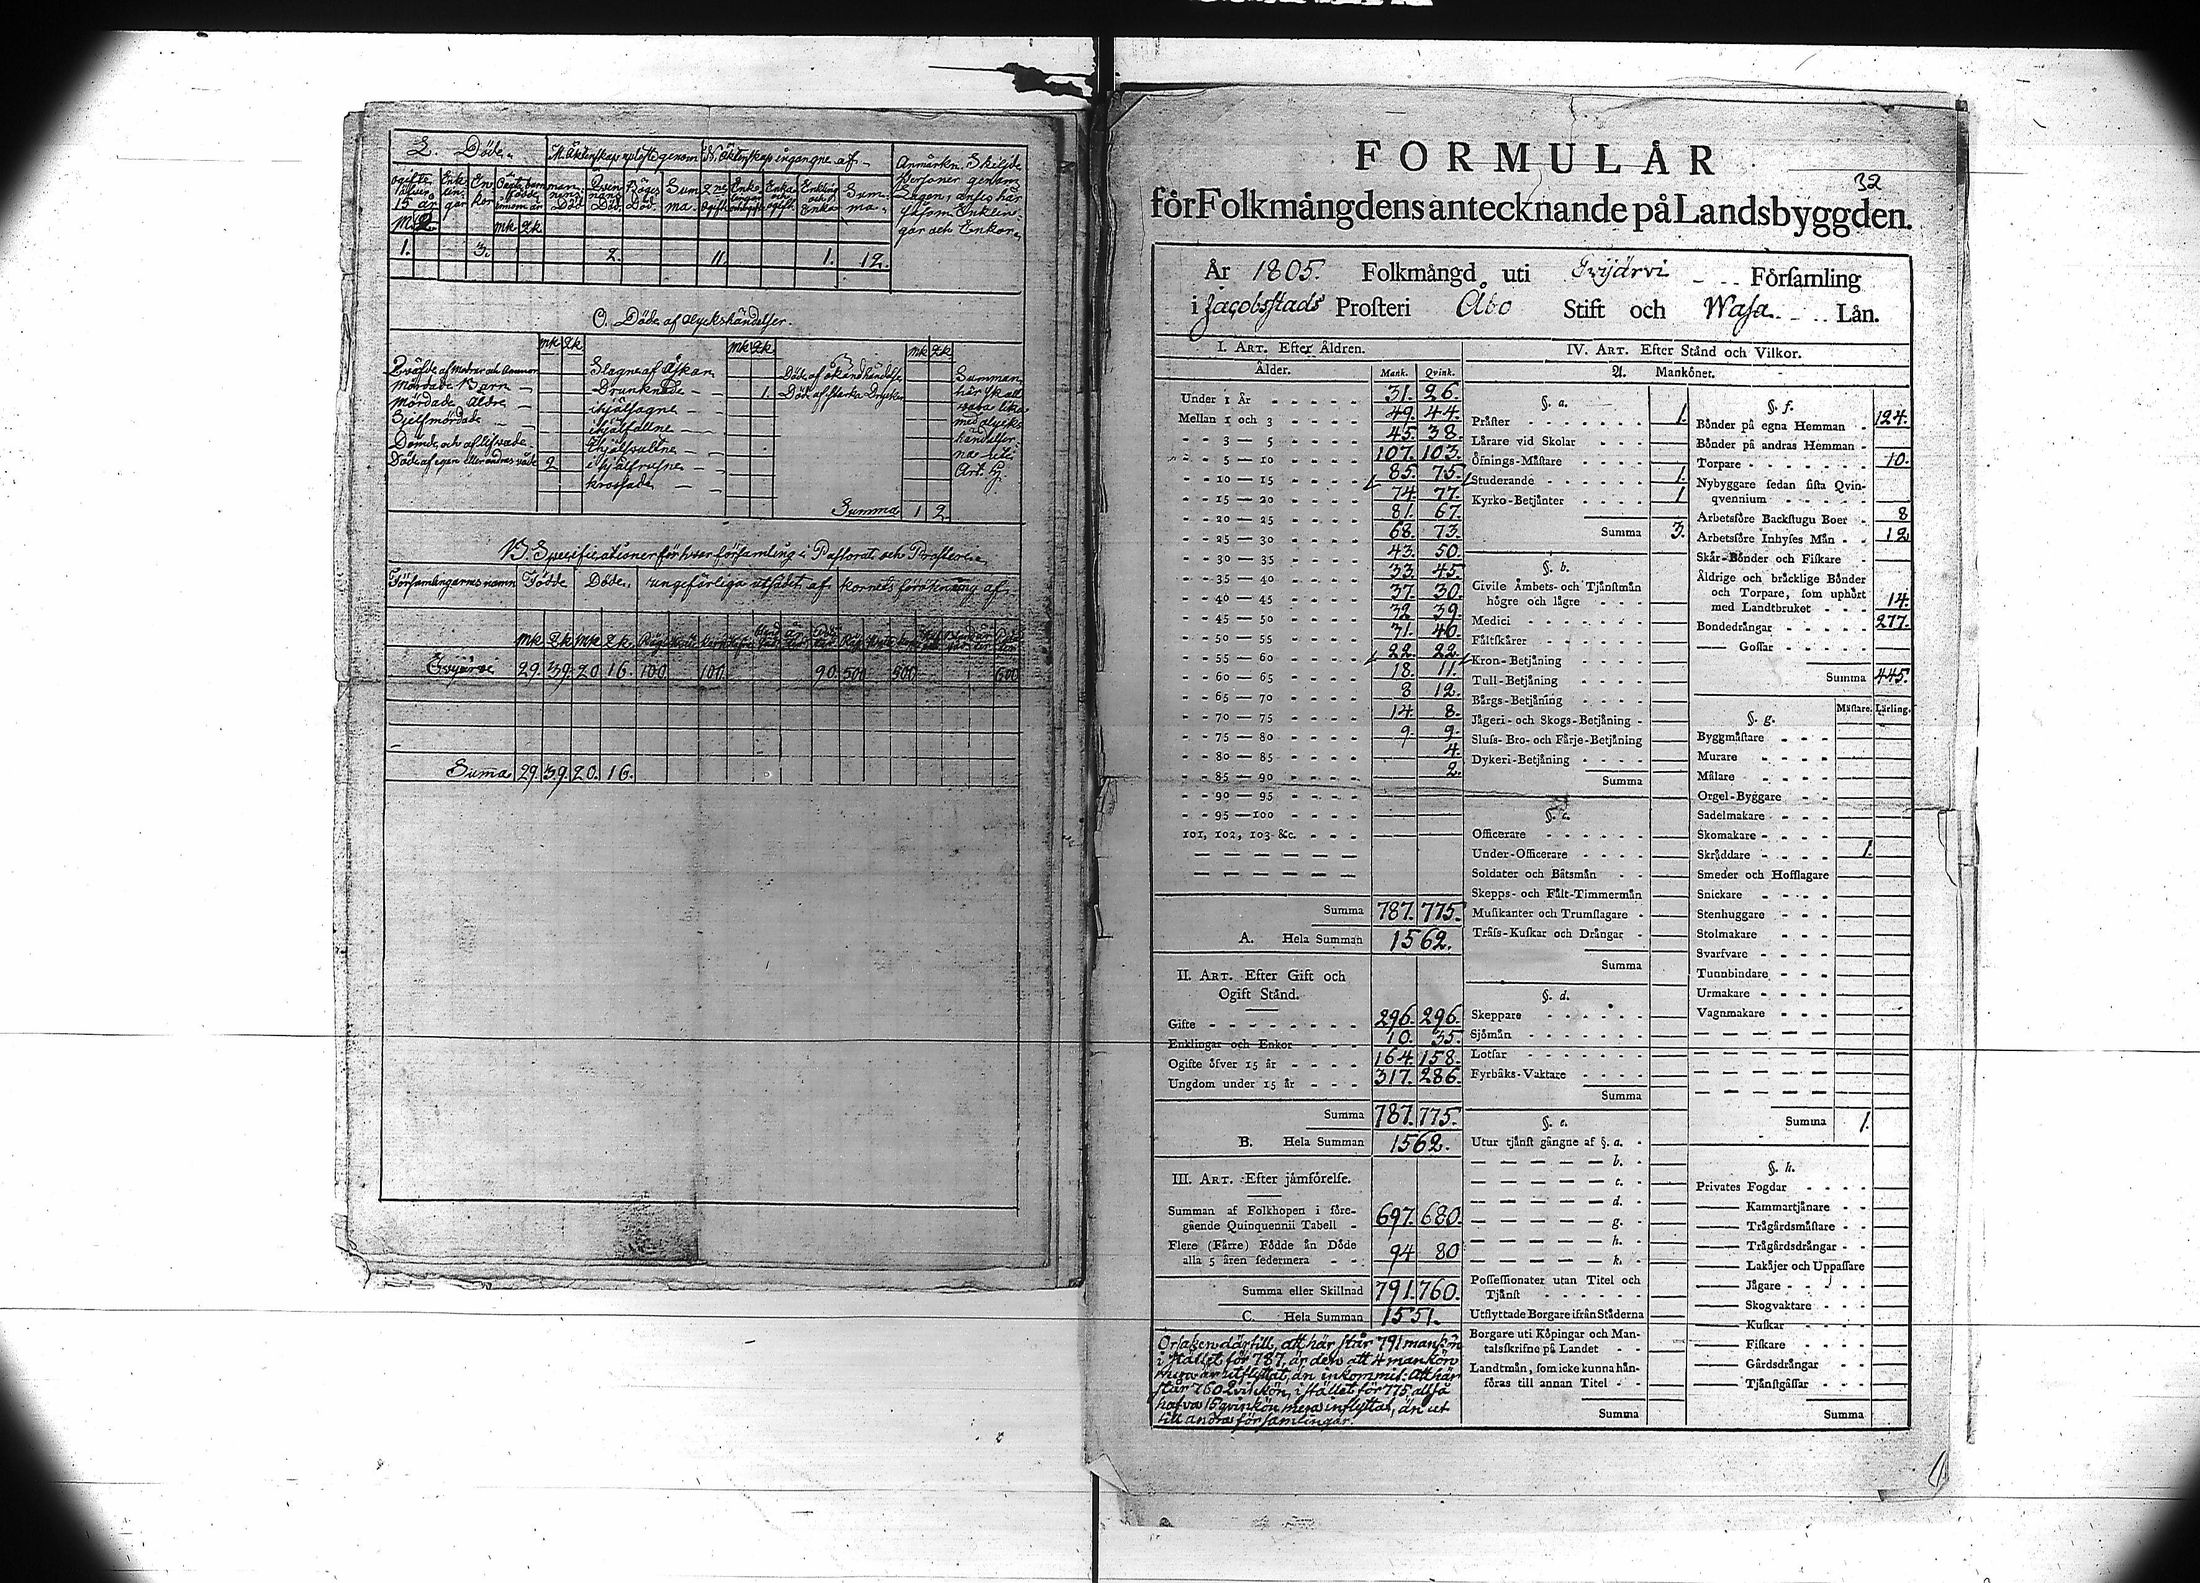 L. Döde.
M. Äktenskap uplöste genom
N. Äktenskap ingångne af
Anmärkn. Skilgde
Personer genom
Lagen, anses här
såsom Enklin-
gar och Enkor.
Sum-
ma
1. 3. 2. 11. 1. 12.
O. Döde af olyckshändelser.
mk qk mk qk mk qk
Qväfde af Mödrar och Ammor
Mördade Barn
Mördade Äldre
Sjelfmördade
Dömde och aflifvade
Döde af egen eller andras våde 2
Slagne af Åskan
Drunknade 1.
ihjälfrusne
krossade
Döde af okänd händelse
Döde af starka Drycker
Summan
här skall
vara lika
med olycks
händelser-
na uti
Art. G.
Summa 1 2.
Specificationer för hvar församling i Pastorat och Prosteri
Församlingarnes namn Födde Döde ungefärliga utsädet af kornets förökning af
mk qk mk qk
29. 39. 20 16. 100 100. 90. 500 900 600
Suma 29. 39. 20. 16.
32
FORMULÅR
för Folkmångdens antecknande på Landsbyggden.
År 1805. Folkmångd uti Evijärvi Församling
i Jacobsstads Prosteri Åbo Stift och Wasa Lån.
I. ART. Efter Åldren.
Ålder. Mank. Qvink.
Under 1 År 31. 26.
Mellan 1 och 3 49. 44.
3 — 5 45. 38.
5 — 10 107. 103.
10 — 15 85. 75.
15 — 20 74. 77.
20 — 25 81. 67.
25 — 30 68. 73.
30 — 35 43. 50.
35 — 40 33. 45.
40 — 45 37. 30.
45 — 50 32 39.
50 — 55 31. 40.
55 — 60 22. 22.
60 — 65 18. 11.
65 — 70 8 12.
70 — 75 14. 8.
75 — 80 9. 9.
80 — 85 4.
85 — 90 2.
90 — 95
95 — 100
101, 102, 103 &c.
Summa 787. 775.
A. Hela Summan 1562.
II. ART. Efter Gift och
Ogift Stånd.
Gifte 296. 296.
Enklingar och Enkor 10. 35.
Ogifte öfver 15 år 164. 158.
Ungdom under 15 år 317. 286.
Summa 787. 775.
B. Hela Summan 1562.
III. ART. Efter jämförelse.
Summan af Folkhopen i före-
gående Quinquennii Tabell 697. 680.
Flere (Färre) Födde än Döde
alla 5 åren sedermera 94 80
Summa eller Skillnad 791. 760.
C. Hela Summan 1551.
Orsaken därtill, att här står 791 mankön
i stället för 787, är den att 4 mankön
mera utflyttat, än inkommit. Att här
står 760 Qvinkön, i stället för 775, alltså
hafva 15 qvinkön mera inflyttat, än ut
till andra församlingar.
IV. ART. Efter Stånd och Vilkor.
A. Mankönet.
§. a.
Präster 1.
Lärare vid Skolar
Öfnings-Mästare
Studerande 1.
Kyrko-Betjänter 1
Summa 3.
§. b.
Civile Ämbets- och Tjänstmän
högre och lägre
Medici
Fältskärer
Kron-Betjäning
Tull-Betjäning
Bärgs-Betjäning
Jägeri- och Skogs-Betjäning
Sluss- Bro- och Färje-Betjäning
Dykeri-Betjäning
Summa
§. c.
Officerare
Under-Officerare
Soldater och Båtsmän
Skepps- och Fält-Timmermän
Musikanter och Trumslagare
Träss-Kuskar och Drängar
Summa
§. d.
Skeppare
Sjömän
Lotsar
Fyrbåks-Vaktare
Summa
§. e.
Utur tjänst gångne af §. a.
b.
c.
d.
g.
h.
k.
Possessionater utan Titel och
Tjänst
Utflyttade Borgare ifrån Städerna
Borgare uti Köpingar och Man-
talsskrifne på Landet
Landtmän, som icke kunna hän-
föras till annan Titel
Summa
§. f.
Bönder på egna Hemman 124.
Bönder på andras Hemman
Torpare 10.
Nybyggare sedan sista Qvin-
qvennium
Arbetsföre Backstugu Boer 8
Arbetsföre Inhyses Män 12
Skär-Bönder och Fiskare
Äldrige och bräcklige Bönder
och Torpare, som uphört
med Landtbruket 14.
Bondedrängar 277.
Gossar
Summa 445.
§. g. Mästare. Lärling.
Byggmästare
Murare
Målare
Orgel-Byggare
Sadelmakare
Skomakare
Skräddare 1.
Smeder och Hofslagare
Snickare
Stenhuggare
Stolmakare
Svarfvare
Tunnbindare
Urmakare
Vagnmakare
Summa 1.
§. h.
Privates Fogdar
Kammartjänare
Trägårdsmästare
Trägårdsdrängar
Lakäjer och Uppassare
Jägare
Skogvaktare
Kuskar
Fiskare
Gårdsdrängar
Tjänstgåssar
Summa